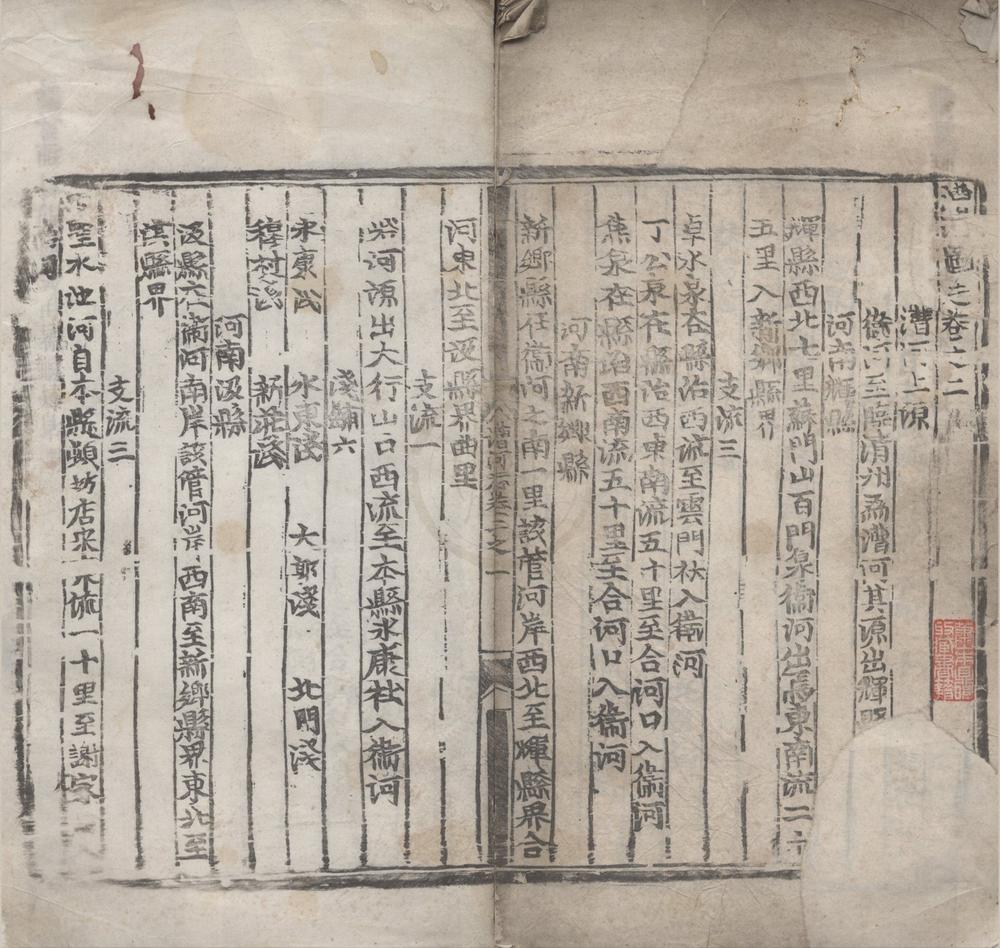 漕河通志卷之二
漕河上源
衞河至臨清州爲漕河其源出輝縣
河南輝縣
輝縣西北七里蘇門山百門泉衞河出焉東南流二十
五里入新鄉縣界
支流三
卓水泉在縣治西流至雲門社入衞河
丁公泉在縣治西東南流五十里至合河口入衞河
焦泉在縣治西南流五十里至合河口入衞河
河南新鄉縣
新鄉縣在衞河之南一里該管河岸西北至輝縣界合
漕河志卷二之一
河東北至汲縣界曲里
支流一
出大行山口西流至本縣永康社入衞河
淺鋪六
永康淺 水東淺 大郭淺 北門淺
穆村淺 新莊淺
河南汲縣
汲縣在衞河南岸該管河岸西南至新鄉縣界東北至
淇縣界
支流三
聖水池河自本縣頓坊店 流一十里至謝家